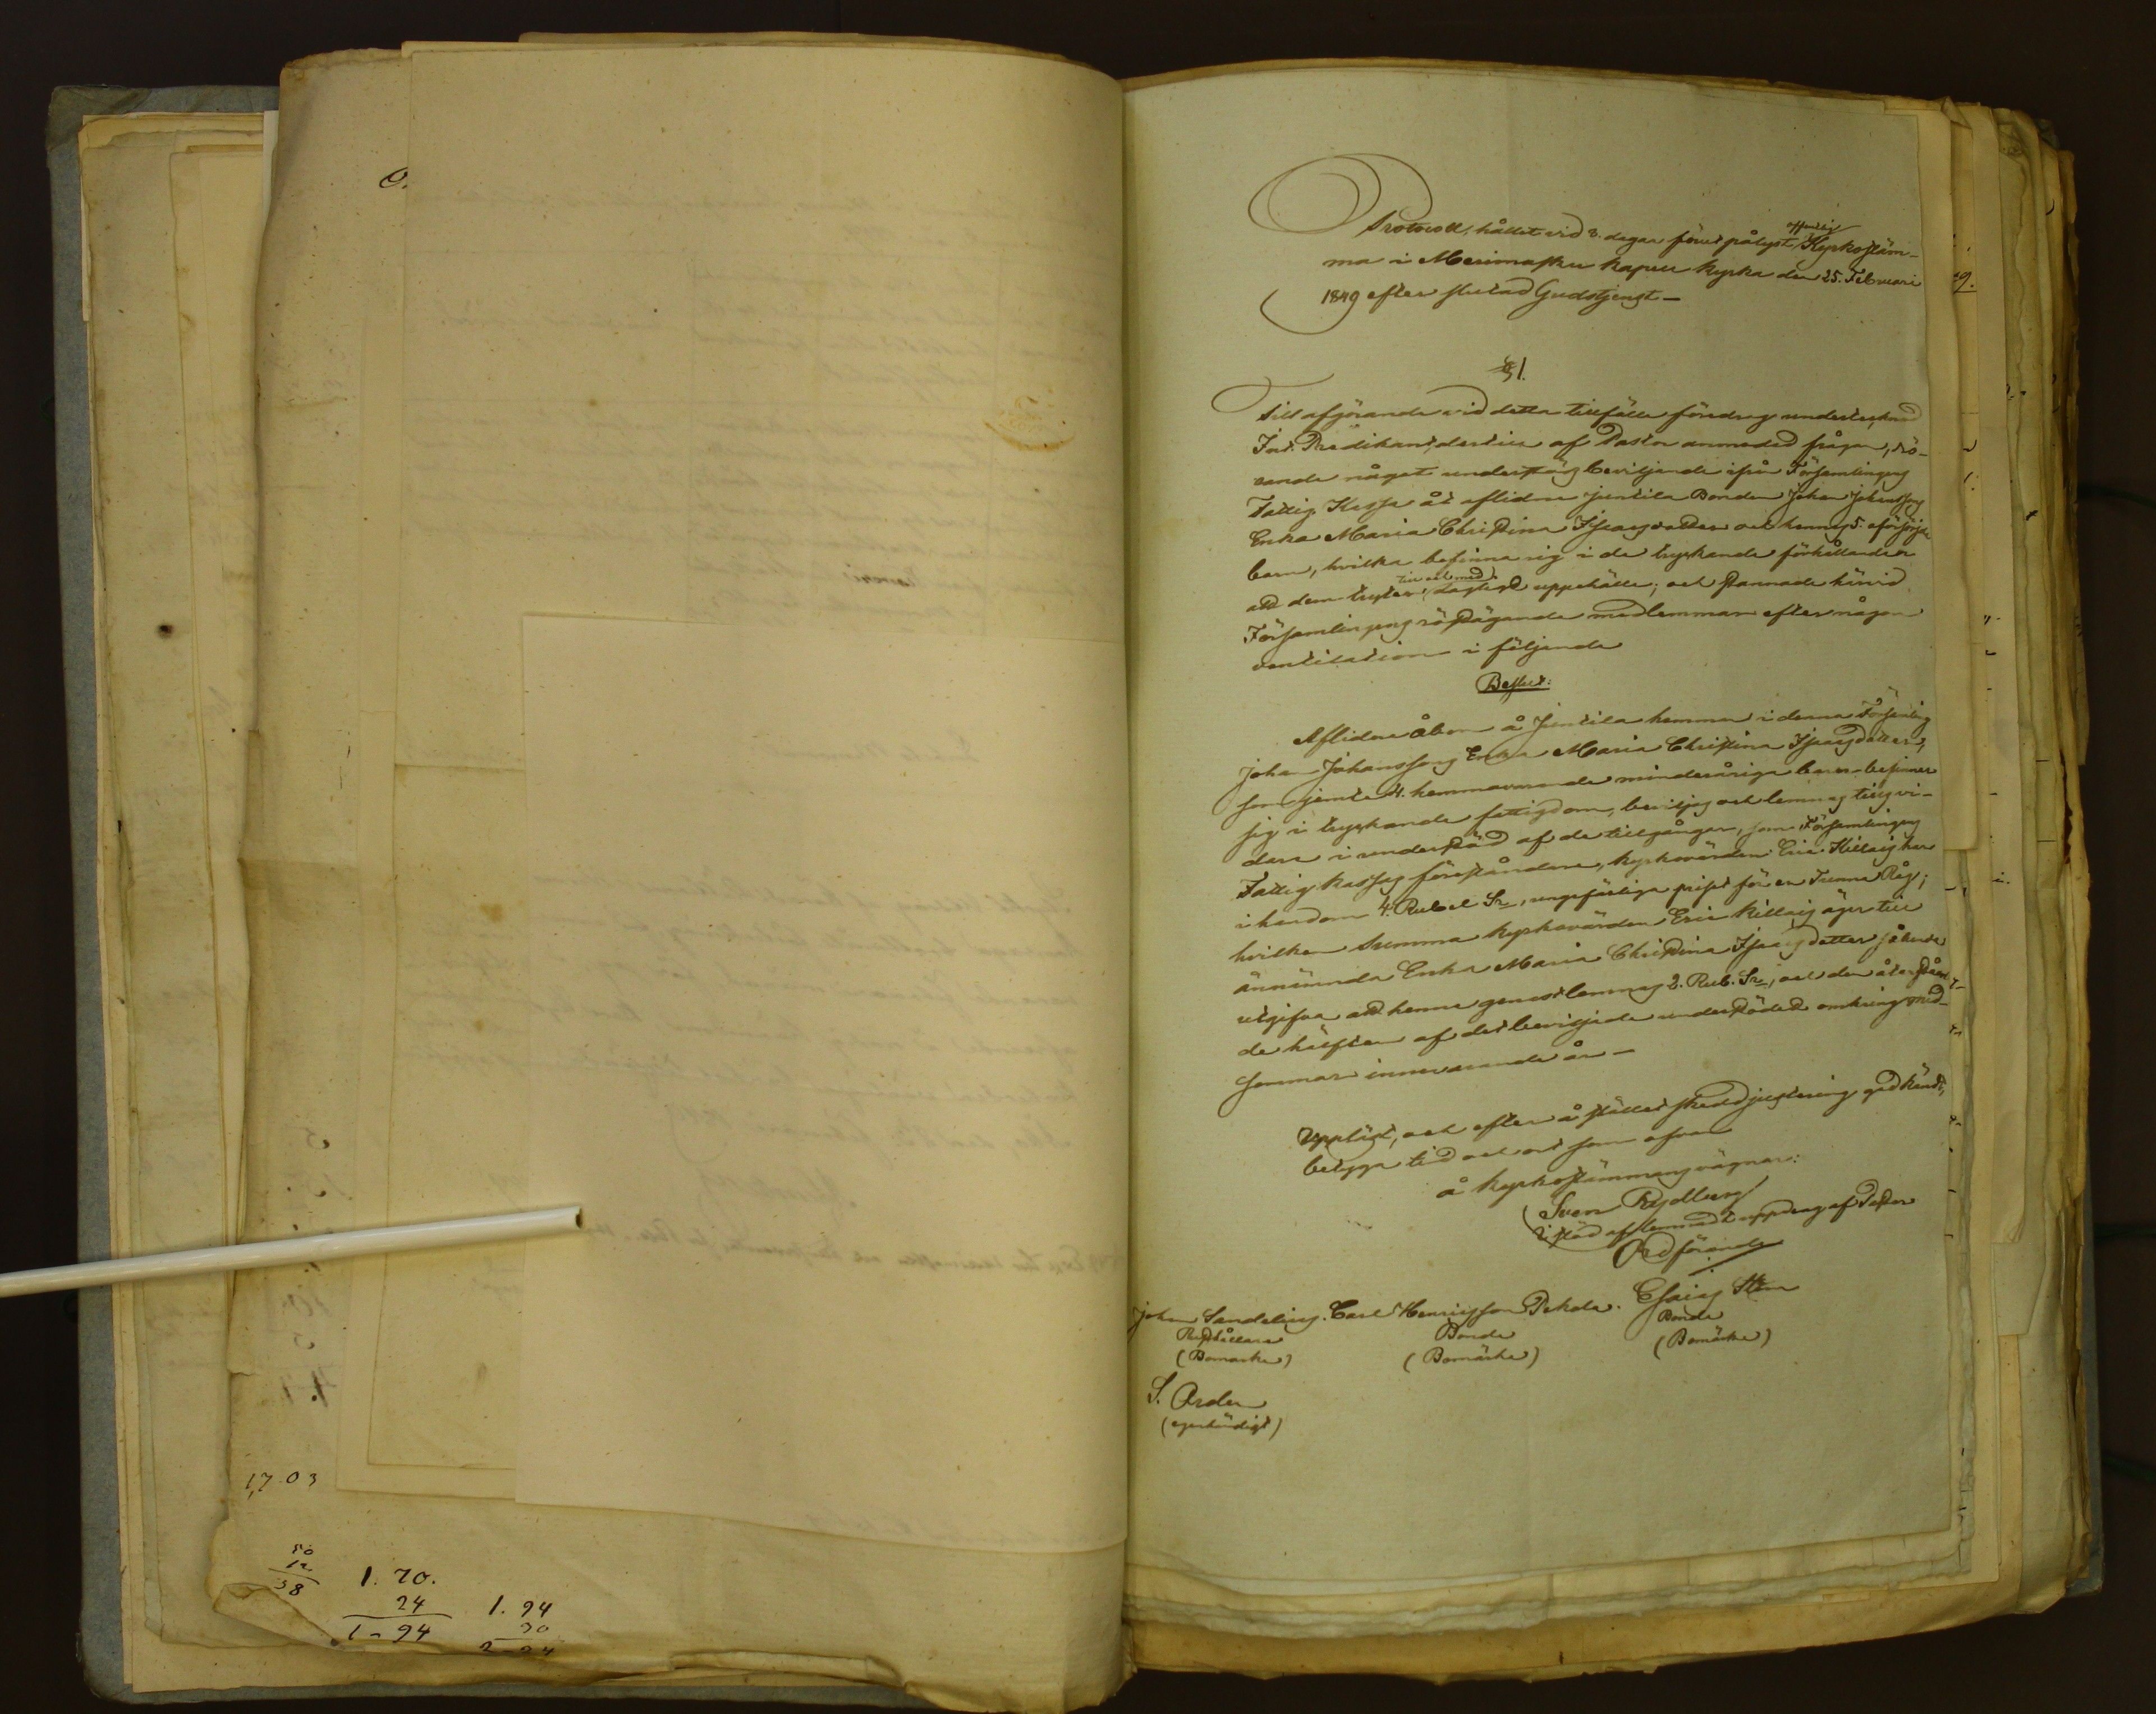 O.
17.03
50
12
38
1. 70.
24
1-94
1. 94
30
2-24
Protocoll, hållet vid 8. dagar förut pålyst offentlig Kyrkostäm-
ma i Merimasku kapell kyrka den 25. Februari
1849 efter slutad Gudstjenst-
§1.
Till afgörande vid detta tillfälle föredrogs undertecknad
Ford. Predikant, dertill af Pastor anmodad frågan, rö-
rande något understöds beviljande ifrån Församlingens
Fattig Kassa åt aflidne Juntila Bonden Johan Johanssons
Enka Maria Christina Isaacsdotter och hennes 5. oförsörjda
barn, hvilka befinna sig i de tryckande förhållanden
att dem tryter till och med dagligt uppehälle; och stannade härvid
Församlingens röstägande medlemmar efter någon
ventilation i följande
Beslut:
Aflidne åboen å Juntila hemman i denna Församling
Johan Johanssons Enka Maria Christina Isaacsdotter,
som jemte 4. hemmavarande minderåriga barn befinner
sig i tryckande fattigdom, beviljas och lemnas tillsvi-
dare i understöd af de tillgångar, som Församlingens
Fattig kassas föreståndare, kyrkovärden Eric Killais har
i handom 4. Rubel Sr, ungefärliga priset för en Tunna Råg;
hvilken Summa kyrkovärden Eric Killais äger till
ännämnda Enka Maria Christina Isaacsdotter så
utgifva att henne genast lemnas 2. Rub. Sr, och den återstån-
de hälften af det beviljade understödet omkring mid-
sommar innevarande år-
Uppläst, och efter å stället skedd justering godkändt,
betygga tid och ort som ofvan
å kyrkostämmans vägnar:
Sven Rydberg
i stöd af lemnadt uppdrag af Pastor
Ordförande
Johan Sandelius. Carl Henricsson Pekola. Esaias Sten
Rusthållare Bonde Bonde
(Bomärke) (Bomärke) (Bomärke)
S. Orden
(egenhändigt)